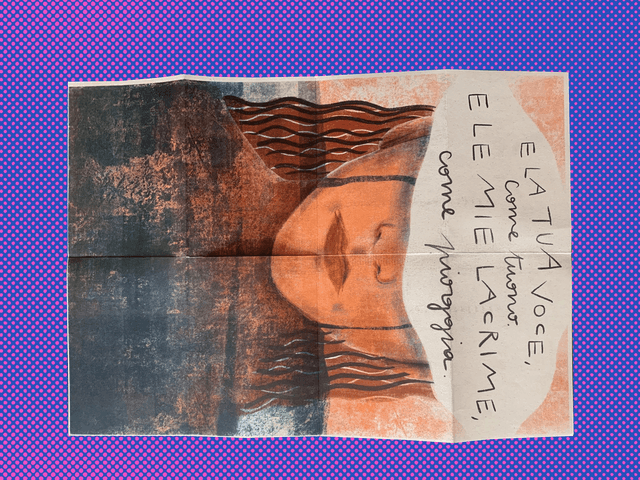 E LA TUA VOCE,
come tuono.
E LE MIE LACRIME,
come pioggia.